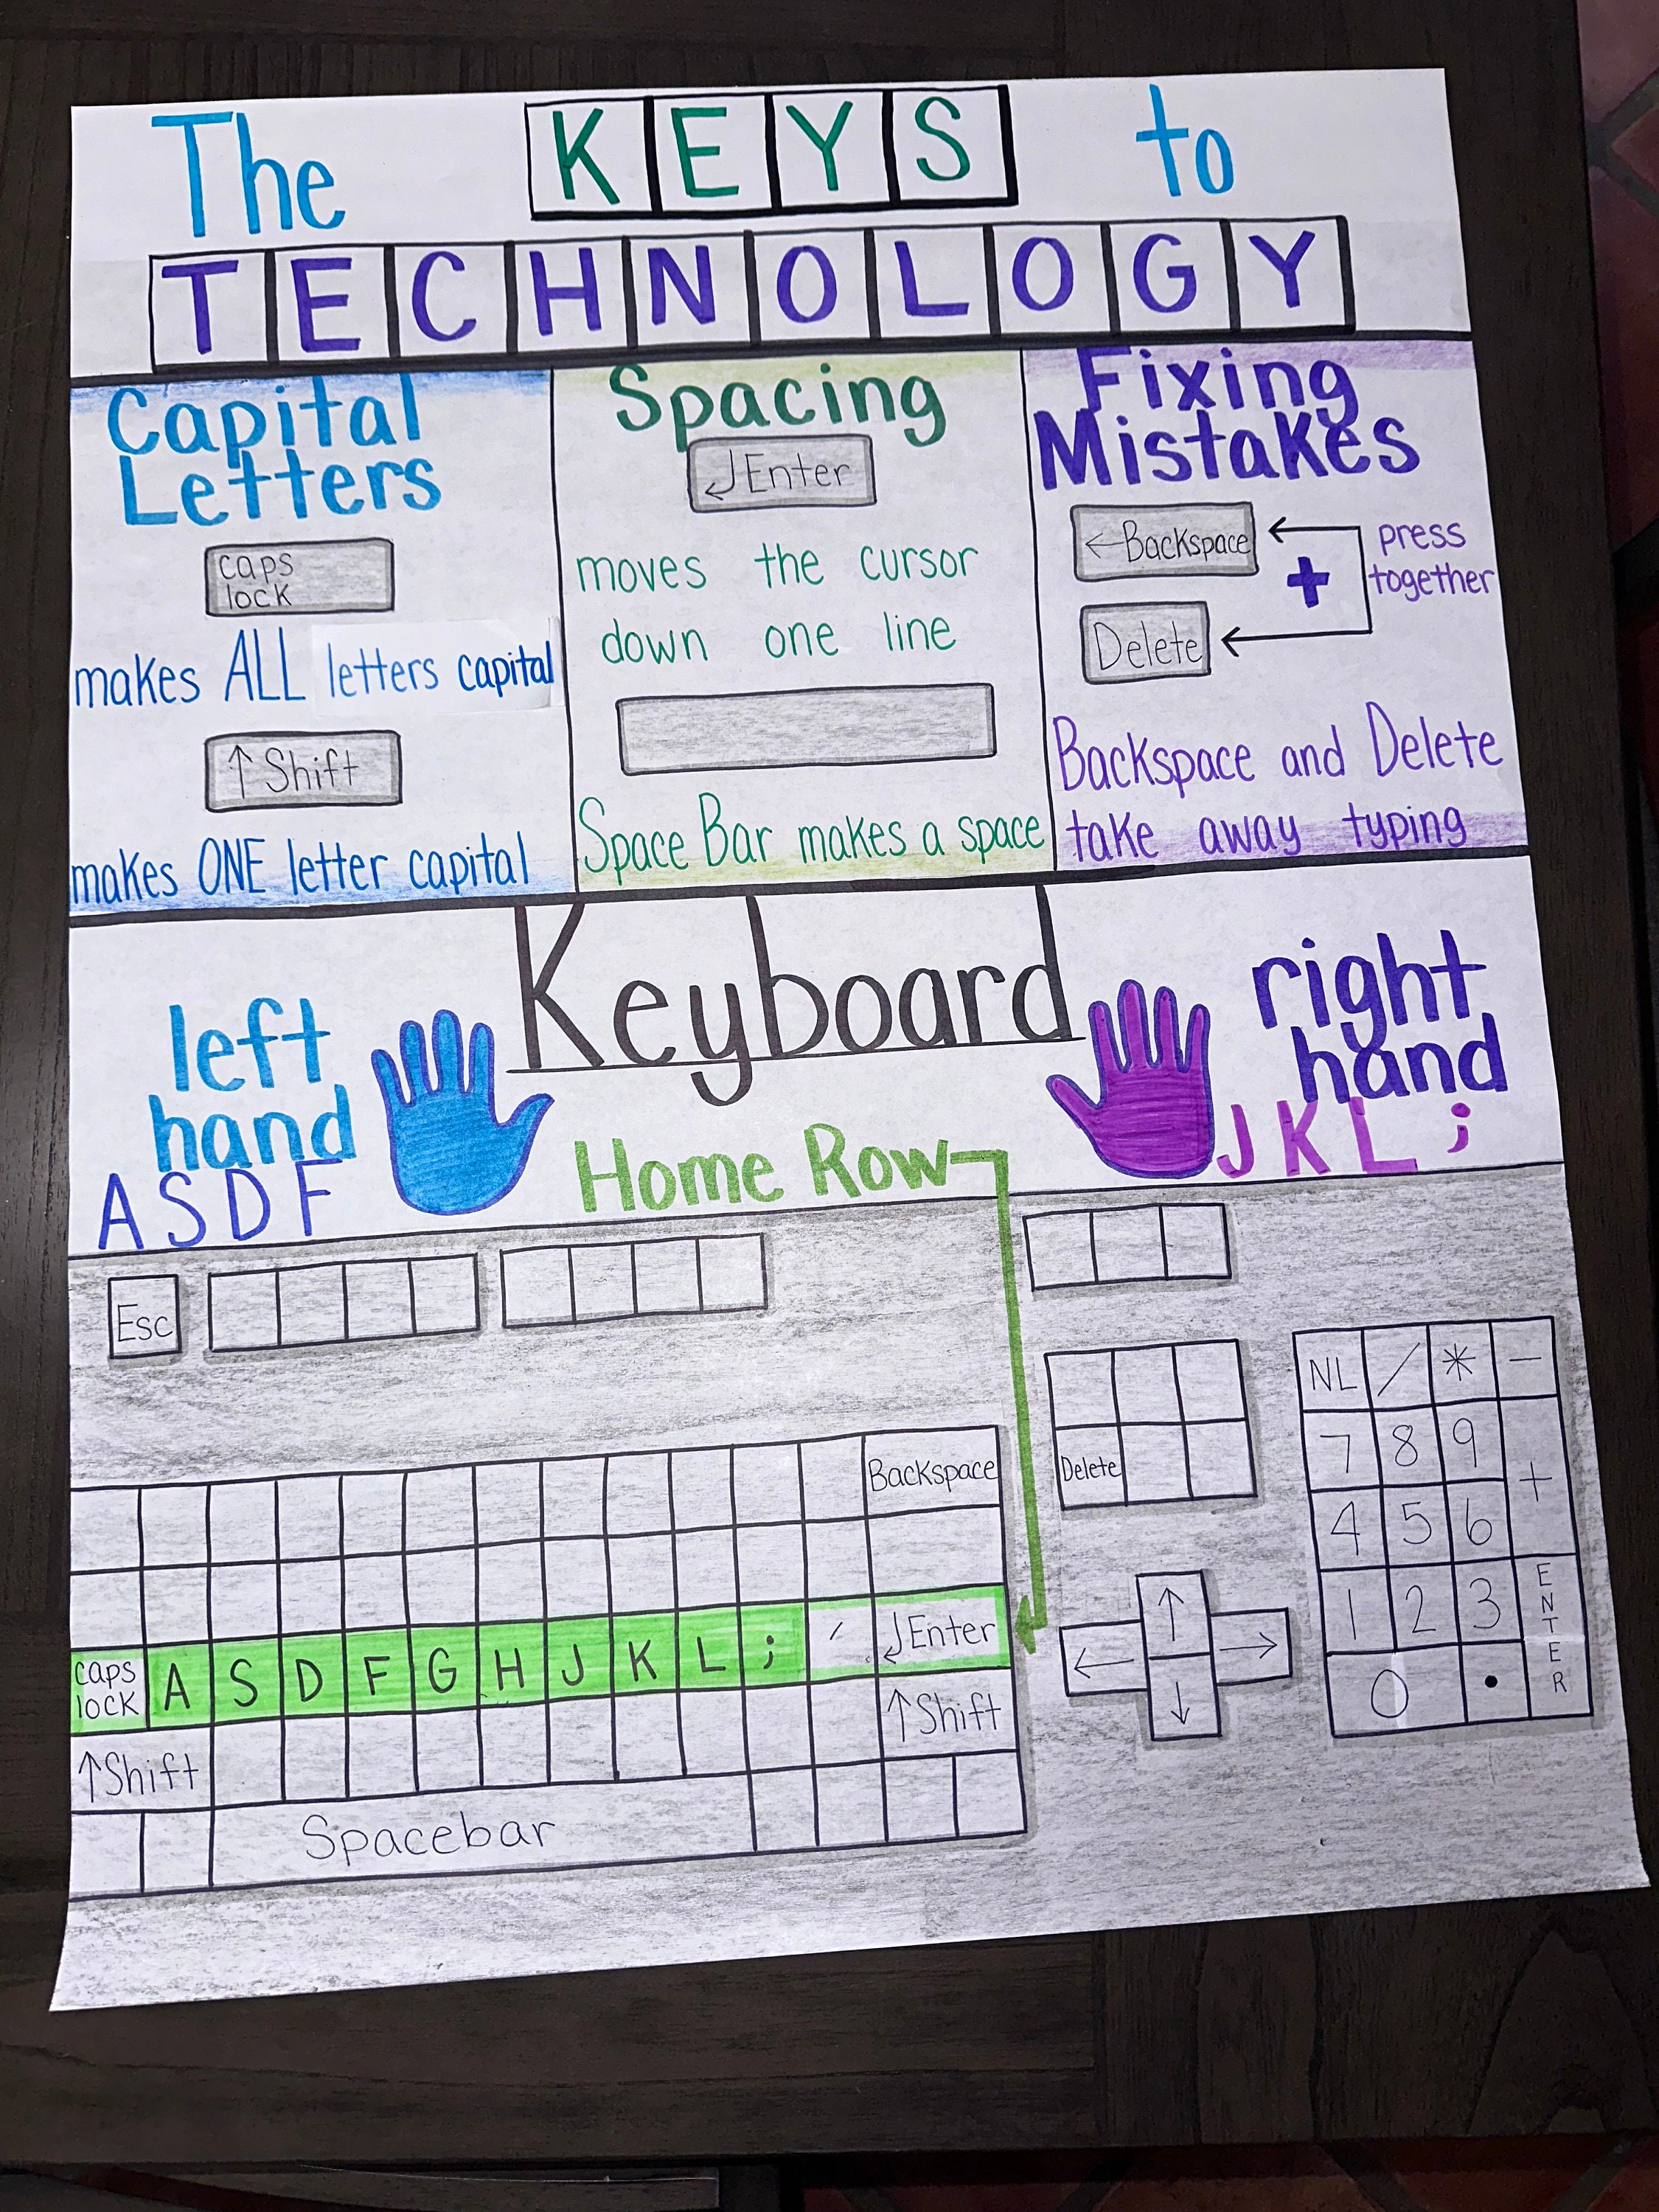 The KEYS to
TECHNOLOGY
Capital
Letters
caps
lock
makes ALL letters capital
↑ Shift
makes ONE letter capital
Spacing
↲ Enter
moves the cursor
down one line
Space Bar makes a space
Fixing
Mistakes
← Backspace
+
Delete
press
together
Backspace and Delete
take away typing
Keyboard
left
hand
A S D F
right
hand
J K L ;
Home Row
Esc
Backspace
caps
lock
A S D F G H J K L ; ' ↲ Enter
↑ Shift
↑ Shift
Spacebar
Delete
↑
← →
↓
NL / * -
7 8 9 +
4 5 6
1 2 3 ENTER
0 .